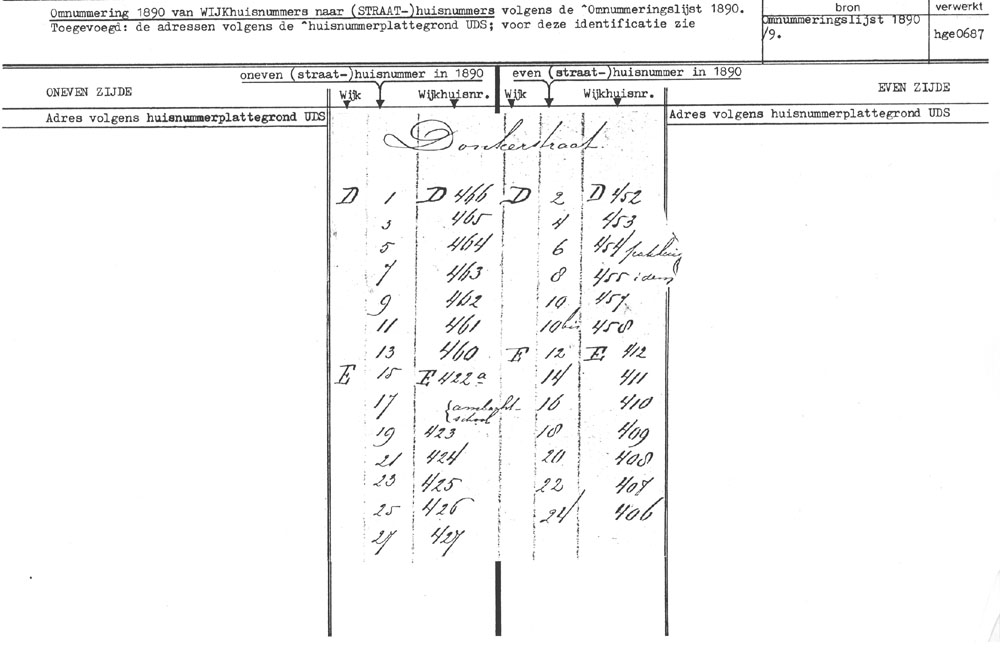 Omnummering 1890 van WIJKhuisnummers naar (STRAAT-)huisnummers volgens de ^Omnummeringslijst 1890.
Toegevoegd: de adressen volgens de ^huisnummerplattegrond UDS; voor deze identificatie zie
bron
Omnummeringslijst 1890
/9.
verwerkt
hge0687
oneven (straat-)huisnummer in 1890 even (straat-)huisnummer in 1890
ONEVEN ZIJDE Wijk Wijkhuisnr. Wijk Wijkhuisnr. EVEN ZIJDE
Adres volgens huisnummerplattegrond UDS Adres volgens huisnummerplattegrond UDS
Donkerstraat.
D 1 D 466 D 2 D 452
3 465 4 453
5 464 6 454
7 463 8 455 idem
9 462 10 457
11 461 10bis 458
13 460 E 12 E 412
E 15 E 422a 14 411
17 {ambacht- 16 410
school
19 423 18 409
21 424 20 408
23 425 22 407
25 426 24 406
27 427